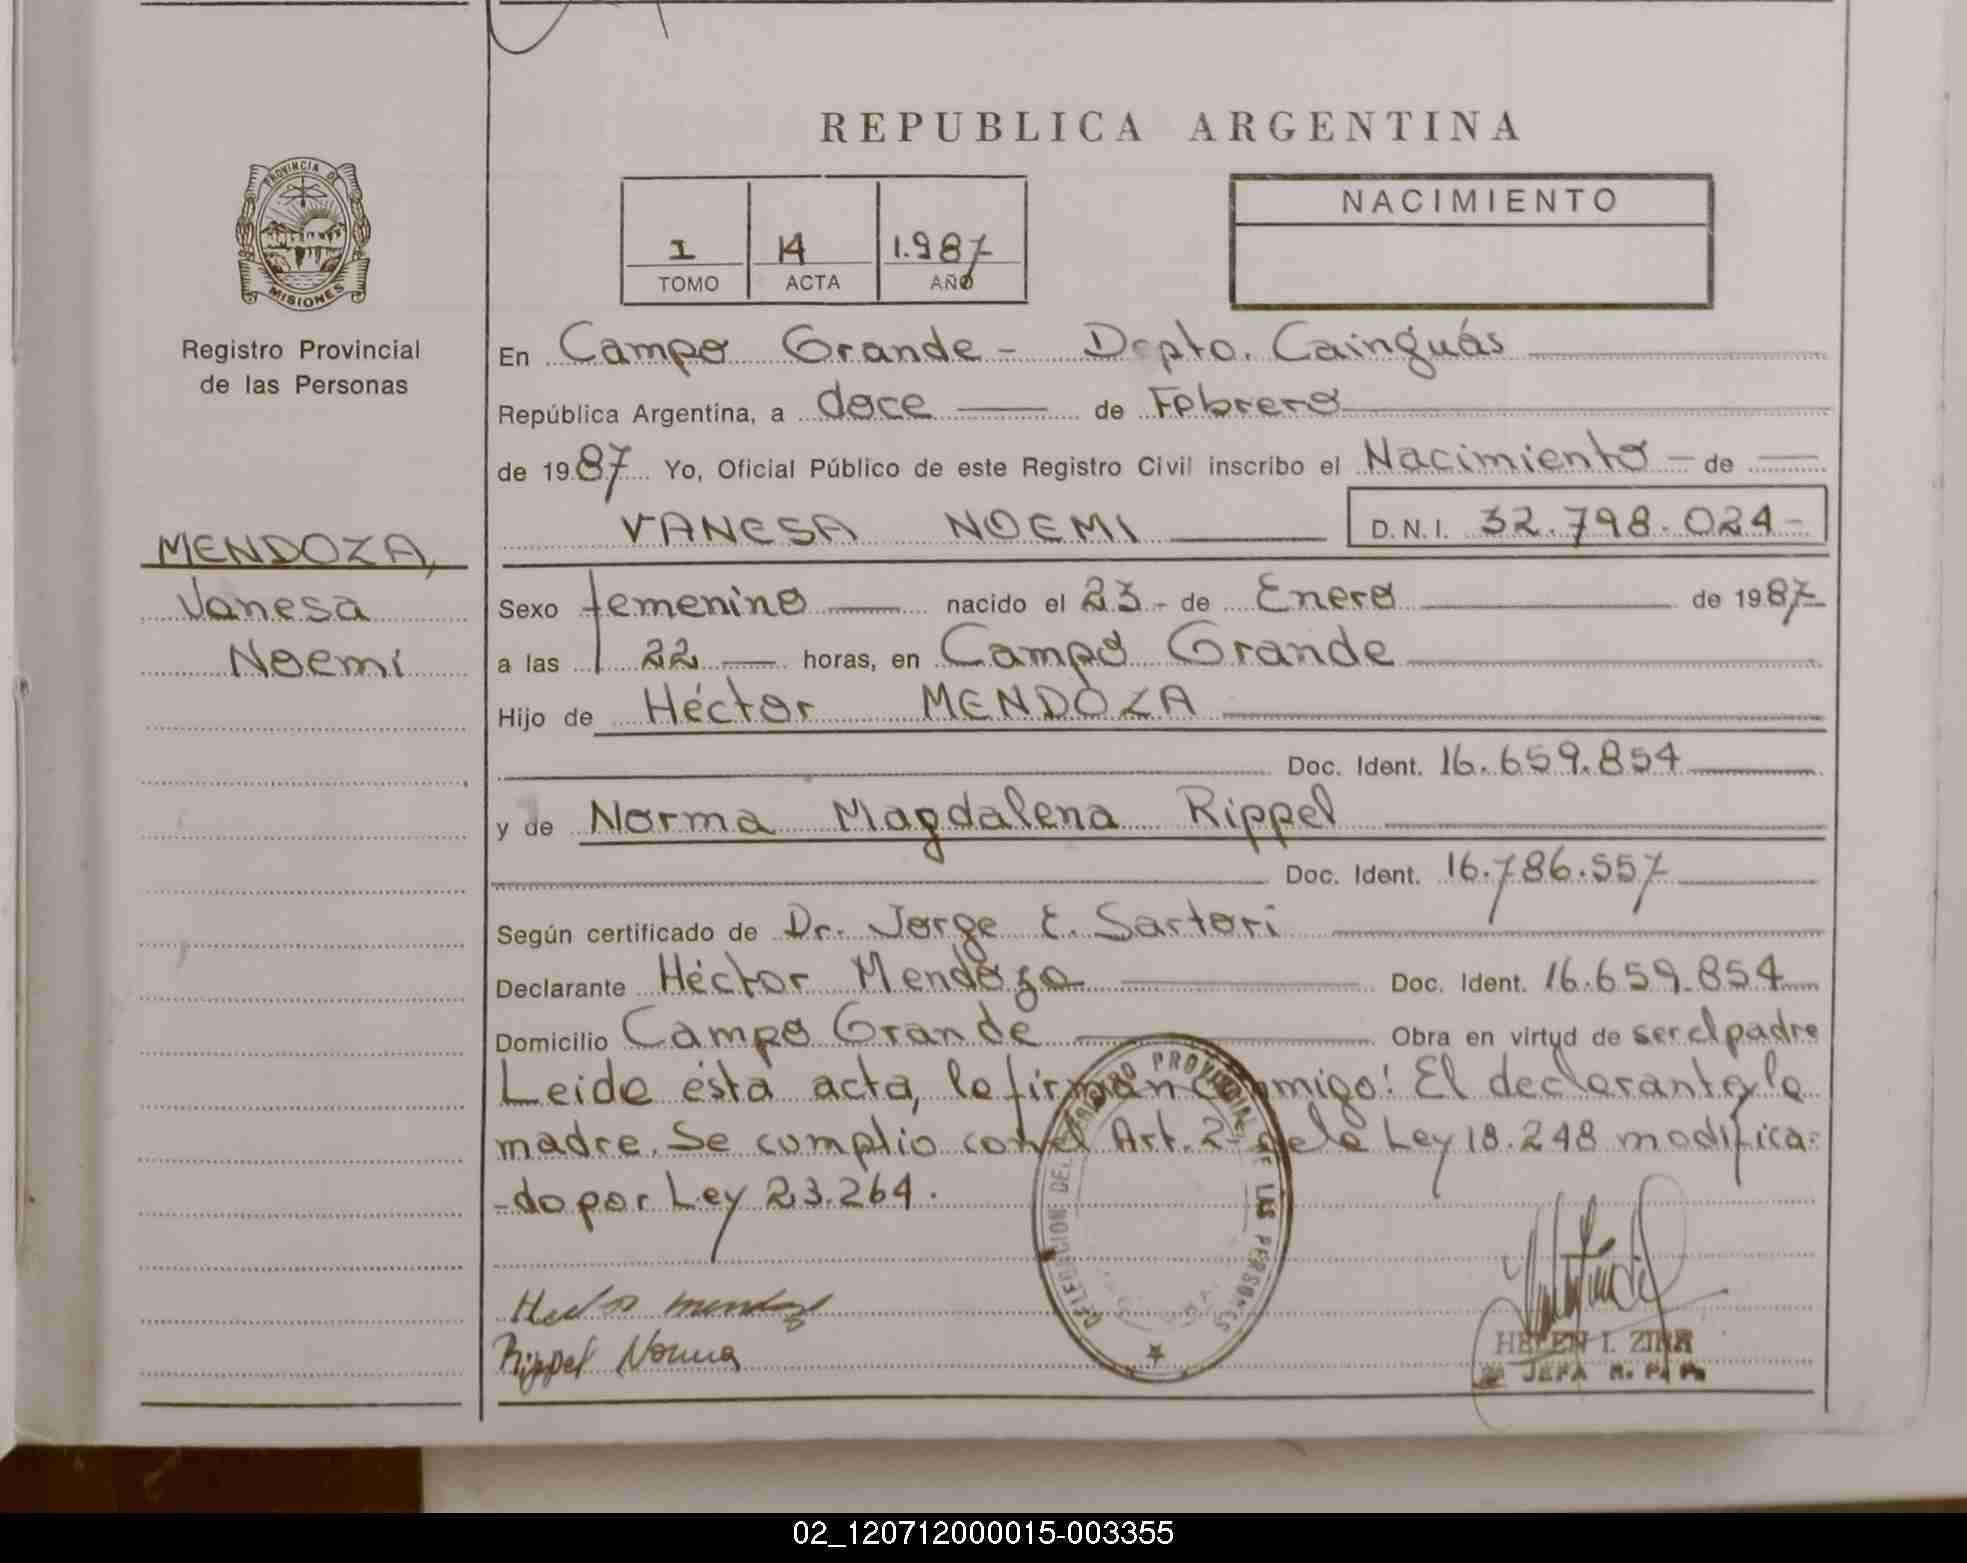 REPUBLICA ARGENTINA
PROVINCIA DE
MISIONES
Registro Provincial
de las Personas
I 14 1.987
TOMO ACTA AÑO
NACIMIENTO
En Campo Grande - Depto. Cainguás
República Argentina, a doce de Febrero
de 1987 Yo, Oficial Público de este Registro Civil inscribo el Nacimiento - de
VANESA NOEMI D.N.I. 32.798.024-
MENDOZA,
Vanesa
Noemí
Sexo femenino nacido el 23 - de Enero de 1987
a las 22 horas, en Campo Grande
Hijo de Héctor MENDOZA
Doc. Ident. 16.659.854
y de Norma Magdalena Rippel
Doc. Ident. 16.786.557
Según certificado de Dr. Jorge E. Sartori
Declarante Héctor Mendoza Doc. Ident. 16.659.854
Domicilio Campo Grande Obra en virtud de ser el padre
Leida ésta acta, la firman conmigo: El declarante y la
madre. Se cumplio con el Art. 2 de la Ley 18.248 modifica-
-do por Ley 23.264.
DELEGACION DEL REGISTRO PROVINCIAL DE LAS PERSONAS
Hector mendoza
Rippel Norma
HELEN I. ZIRR
JEFA R. P. P.
02_120712000015-003355